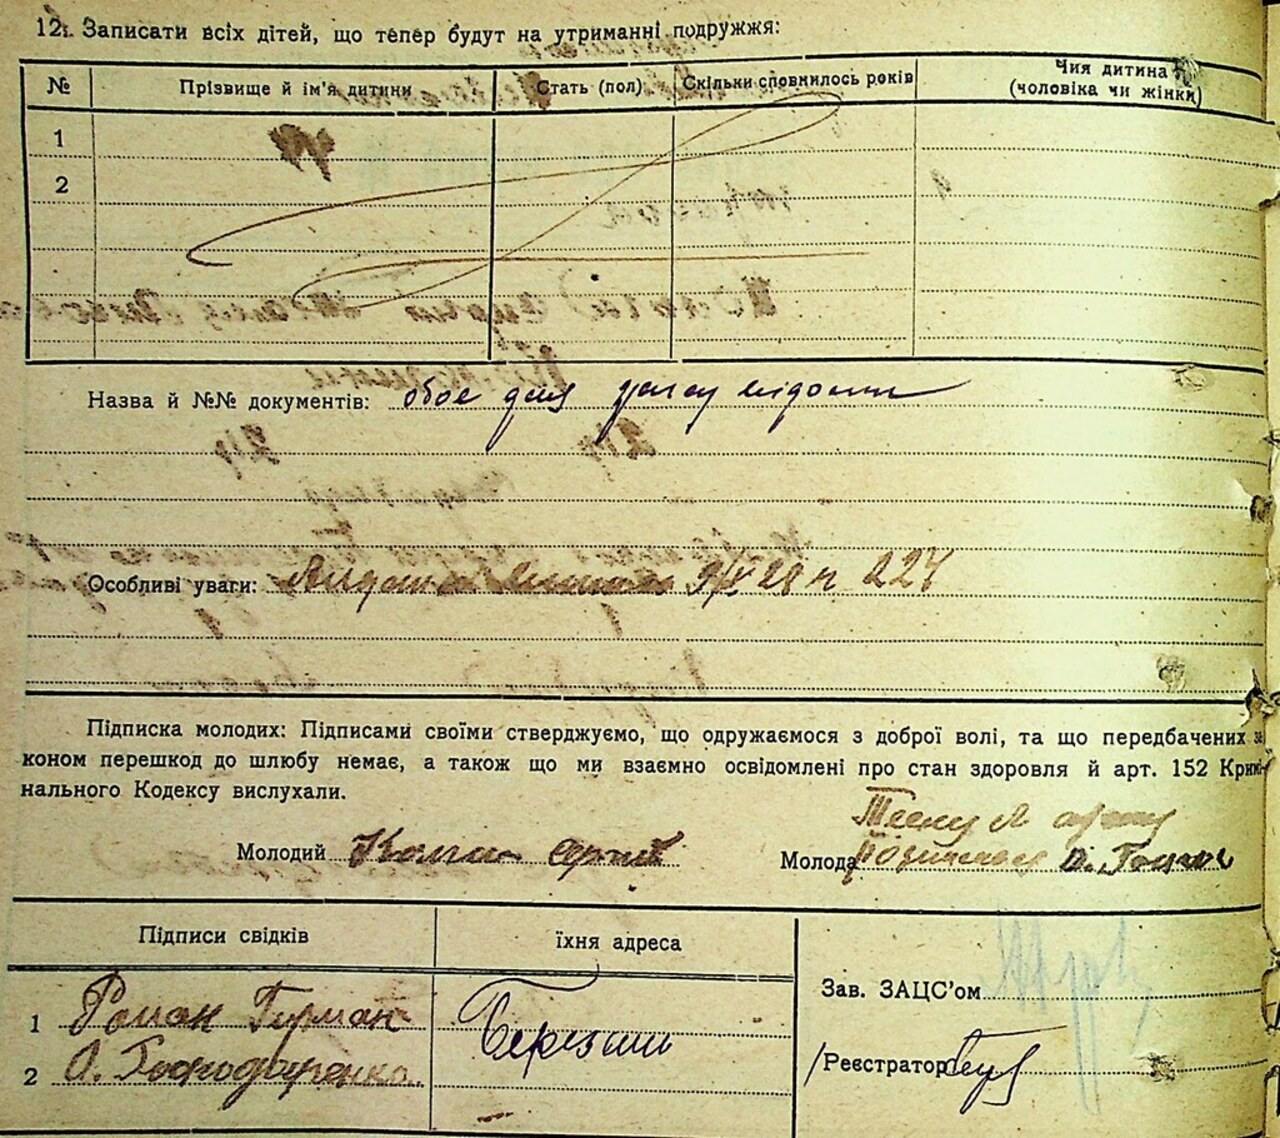 12. Записати всіх дітей, що тепер будут на утриманні подружжя:
№ Прізвище й ім'я дитини Стать (пол) Скільки сповнилось років Чия дитина
(чоловіка чи жінки)
1
2
Назва й №№ документів: обоє для
Особливі уваги: 9/IX 29 р 224
Підписка молодих: Підписами своїми стверджуємо, що одружаємося з доброї волі, та що передбачених за-
коном перешкод до шлюбу немає, а також що ми взаємно освідомлені про стан здоровля й арт. 152 Кримі-
нального Кодексу вислухали.
Молодий Сергій
Молода
Підписи свідків їхня адреса
1 Роман Герман Березань
2 О. Господаренко
Зав. ЗАЦС'ом
Реєстратор